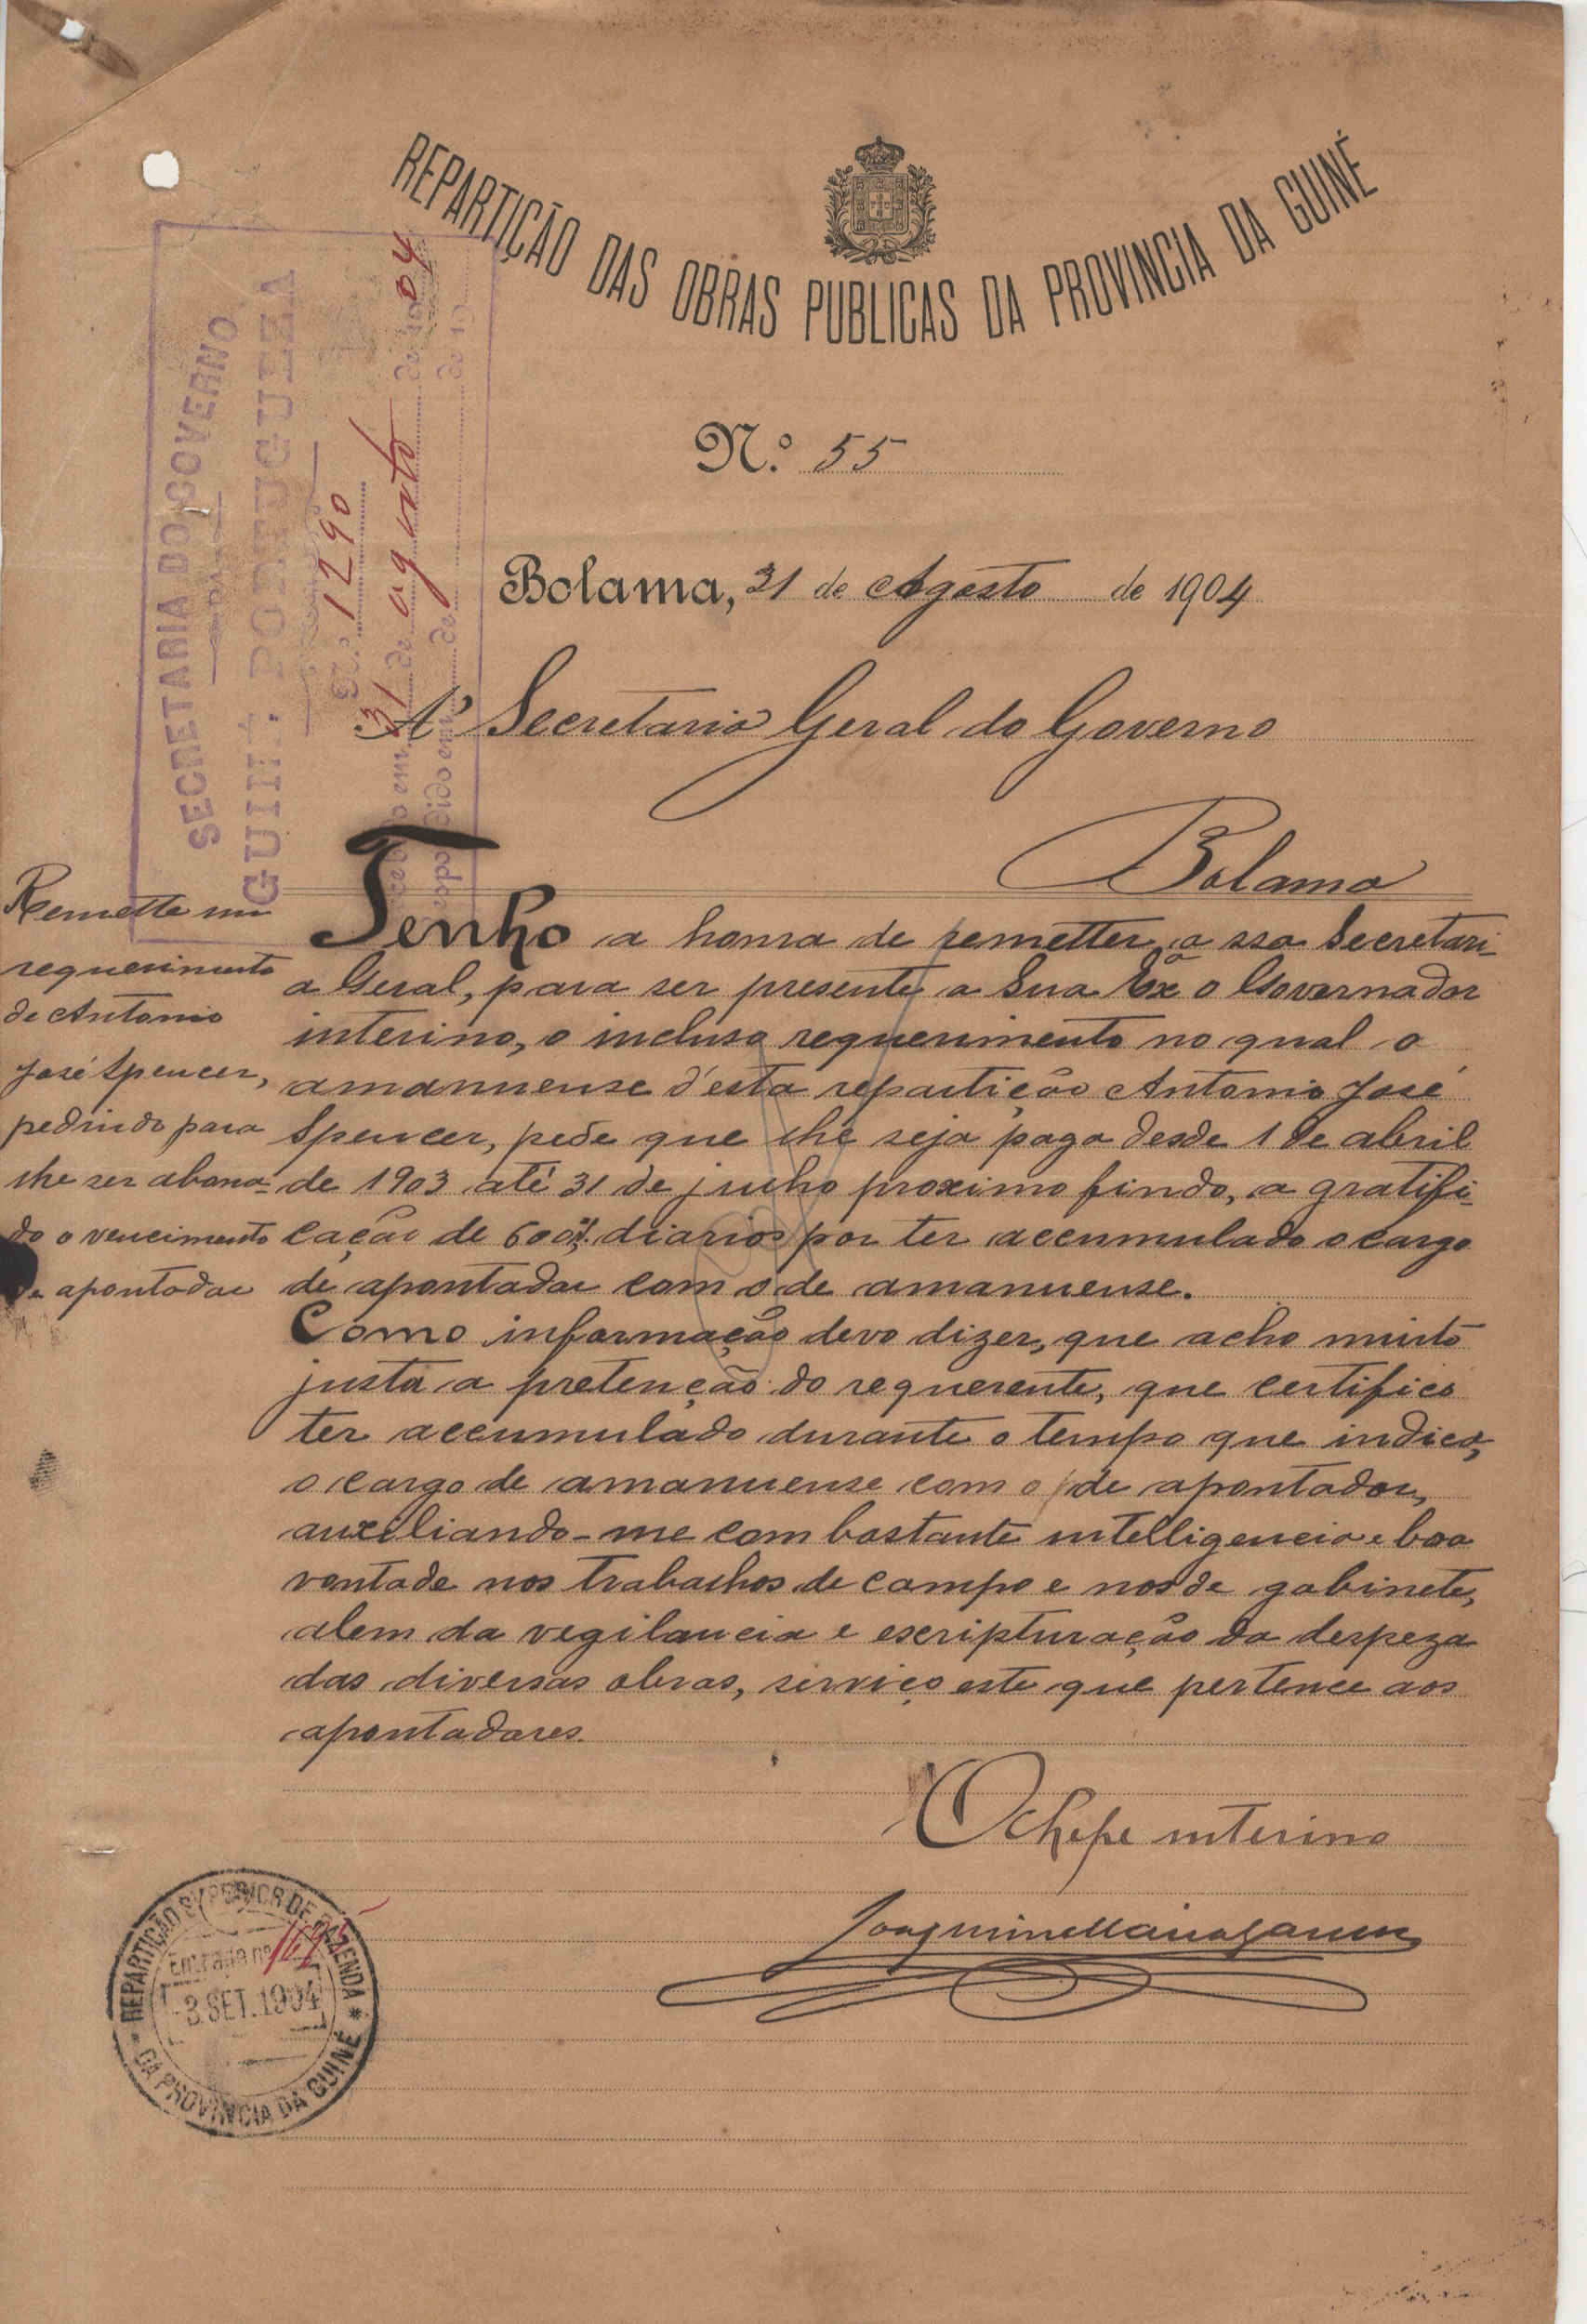 REPARTIÇÃO DAS OBRAS PUBLICAS DA PROVINCIA DA GUINÉ
N.º 55
Bolama, 31 de Agosto de 1904
SECRETARIA DO GOVERNO
GUINÉ PORTUGUEZA
N.º 1290
Recebido em 31 de agosto de 1904
Respondido em de de 19
A' Secretaria Geral do Governo
Bolama
Remette um
requerimento
de Antonio
José Spencer,
pedindo para
lhe ser abona-
do o vencimento
de apontador
Tenho a honra de remetter, a ssa Secretari-
a Geral, para ser presente a Sua Exª o Governador
interino, o incluso requerimento no qual o
amanuense d'esta repartição Antonio José
Spencer, pede que lhe seja paga desde 1 de abril
de 1903 até 31 de julho proximo findo, a gratifi-
cação de 600 diarios por ter accumulado o cargo
de apontador com o de amanuense.
Como informação devo dizer, que acho muito
justa a pretenção do requerente, que certifico
ter accumulado durante o tempo que indica,
o cargo de amanuense com o de apontador,
auxiliando-me com bastante intelligencia e boa
vontade nos trabalhos de campo e nos de gabinete,
alem da vigilancia e escripturação da despeza
das diversas obras, serviço este que pertence aos
apontadores.
O chefe interino
Joaquim
REPARTIÇÃO SUPERIOR DE FAZENDA
DA PROVINCIA DA GUINÉ
Entrada nº
3 SET. 1904